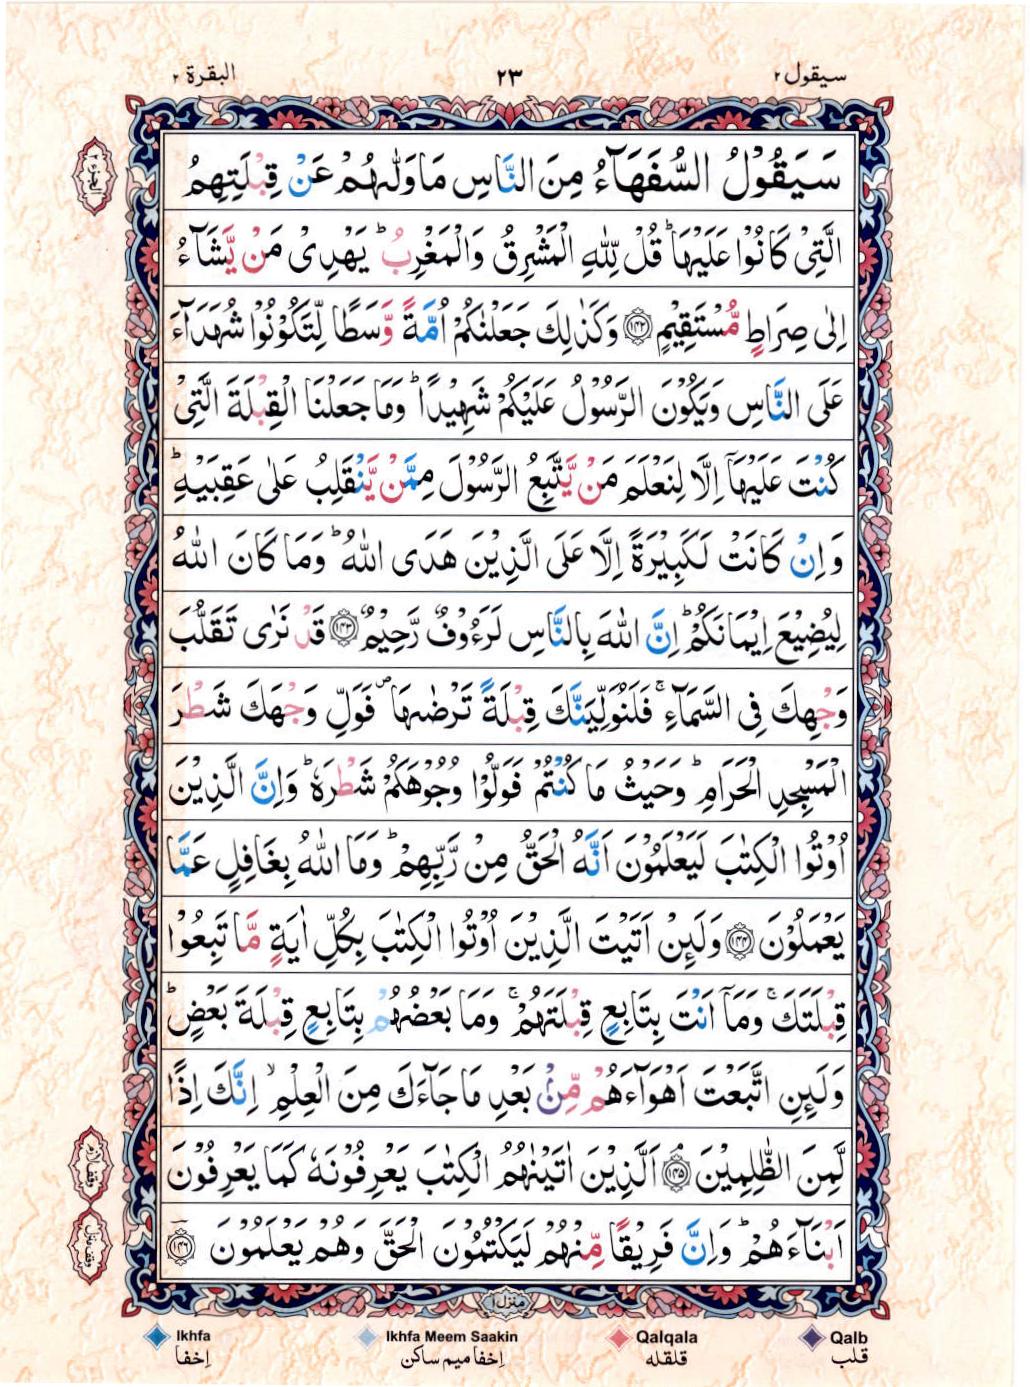 البقرة ٢
٢٣
سيقول ٢
الجزء ٢
سَيَقُوْلُ السُّفَهَآءُ مِنَ النَّاسِ مَا وَلّٰىهُمْ عَنْ قِبْلَتِهِمُ
الَّتِىْ كَانُوْا عَلَيْهَا ؕ قُلْ لِّلّٰهِ الْمَشْرِقُ وَالْمَغْرِبُ ؕ يَهْدِىْ مَنْ يَّشَآءُ
اِلٰى صِرَاطٍ مُّسْتَقِيْمٍ ﴿١٤٢﴾ وَكَذٰلِكَ جَعَلْنٰكُمْ اُمَّةً وَّسَطًا لِّتَكُوْنُوْا شُهَدَآءَ
عَلَى النَّاسِ وَيَكُوْنَ الرَّسُوْلُ عَلَيْكُمْ شَهِيْدًا ؕ وَمَا جَعَلْنَا الْقِبْلَةَ الَّتِىْ
كُنْتَ عَلَيْهَآ اِلَّا لِنَعْلَمَ مَنْ يَّتَّبِعُ الرَّسُوْلَ مِمَّنْ يَّنْقَلِبُ عَلٰى عَقِبَيْهِ ؕ
وَاِنْ كَانَتْ لَكَبِيْرَةً اِلَّا عَلَى الَّذِيْنَ هَدَى اللّٰهُ ؕ وَمَا كَانَ اللّٰهُ
لِيُضِيْعَ اِيْمَانَكُمْ ؕ اِنَّ اللّٰهَ بِالنَّاسِ لَرَءُوْفٌ رَّحِيْمٌ ﴿١٤٣﴾ قَدْ نَرٰى تَقَلُّبَ
وَجْهِكَ فِى السَّمَآءِ ۚ فَلَنُوَلِّيَنَّكَ قِبْلَةً تَرْضٰىهَا ۖ فَوَلِّ وَجْهَكَ شَطْرَ
الْمَسْجِدِ الْحَرَامِ ؕ وَحَيْثُ مَا كُنْتُمْ فَوَلُّوْا وُجُوْهَكُمْ شَطْرَهٗ ؕ وَاِنَّ الَّذِيْنَ
اُوْتُوا الْكِتٰبَ لَيَعْلَمُوْنَ اَنَّهُ الْحَقُّ مِنْ رَّبِّهِمْ ؕ وَمَا اللّٰهُ بِغَافِلٍ عَمَّا
يَعْمَلُوْنَ ﴿١٤٤﴾ وَلَئِنْ اَتَيْتَ الَّذِيْنَ اُوْتُوا الْكِتٰبَ بِكُلِّ اٰيَةٍ مَّا تَبِعُوْا
قِبْلَتَكَ ۚ وَمَآ اَنْتَ بِتَابِعٍ قِبْلَتَهُمْ ۚ وَمَا بَعْضُهُمْ بِتَابِعٍ قِبْلَةَ بَعْضٍ ؕ
وَلَئِنِ اتَّبَعْتَ اَهْوَآءَهُمْ مِّنْۢ بَعْدِ مَا جَآءَكَ مِنَ الْعِلْمِ ۙ اِنَّكَ اِذًا
لَّمِنَ الظّٰلِمِيْنَ ﴿١٤٥﴾ اَلَّذِيْنَ اٰتَيْنٰهُمُ الْكِتٰبَ يَعْرِفُوْنَهٗ كَمَا يَعْرِفُوْنَ
اَبْنَآءَهُمْ ؕ وَاِنَّ فَرِيْقًا مِّنْهُمْ لَيَكْتُمُوْنَ الْحَقَّ وَهُمْ يَعْلَمُوْنَ ﴿١٤٦﴾
وقف لازم
وقف منزل
منزل ١
Ikhfa
اِخفا
Ikhfa Meem Saakin
اِخفا ميم ساكن
Qalqala
قلقله
Qalb
قلب